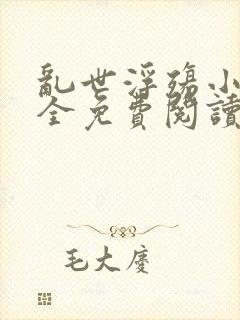 亂世浮殤小
全免費閱讀
毛大慶